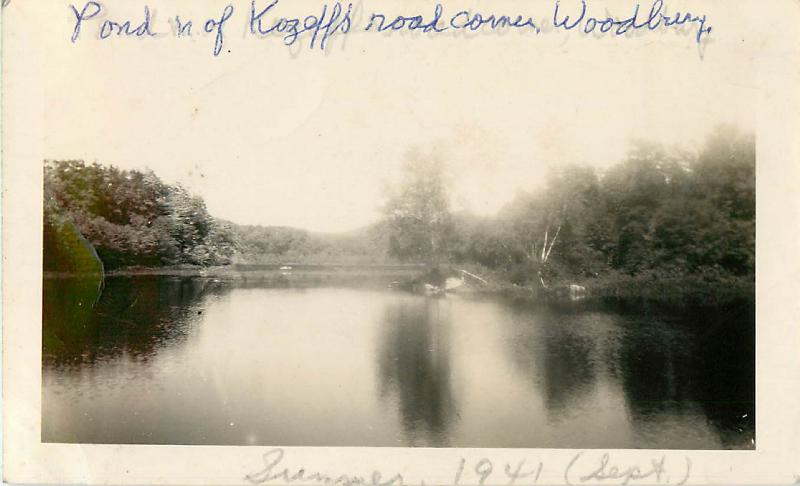 Pond n of Kozeff's road corner, Woodbury.
Summer, 1941 (Sept.)